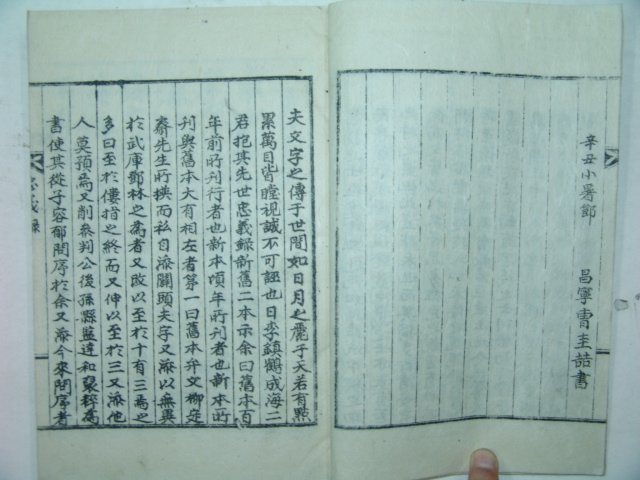 辛丑小暑節　昌寧曺圭喆書
夫文字之傳于世間如日月之麗于天若有點
累萬目皆瞠視誠不可誣也日李鎮鶴成海二
君抱其先世忠義錄新舊二本示余曰舊本百
年前所刊行者也新本頃年所刊者也新本所
刊與舊本大有相左者第一曰舊本弁文柳
齋先生所撰而私自添闢頭夫字又添以無異
於武庫鄧林之為者又改以至於十有三焉之
多曰至於僂指之終而又伸以至於三又添他
人莫預焉又削參判公後孫縣監達和
書使其從子容郁問序於余又添今來問序者
忠義錄